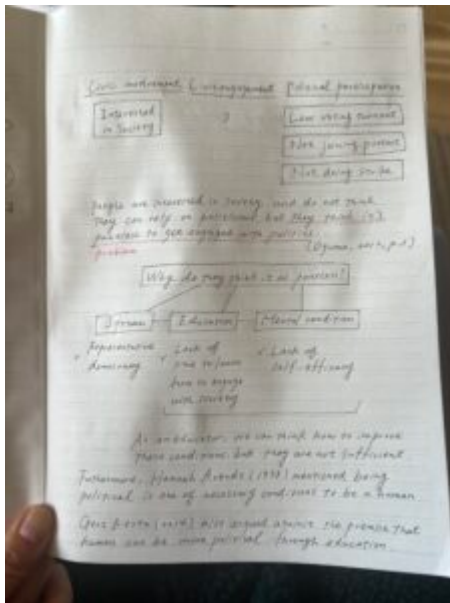 Civic involvement Civic engagement Political participation
Interested
in Society
?
Low voting turnout
Not joining protest
Not doing strike
People are interested in society and do not think
they can rely on politicians but they think it's
pointless to get engaged with politics.
problem
(Oguma, p.1)
Why do they think it as pointless?
System Education Mental condition
Representative
democracy
Lack of
time to learn
how to engage
with society
Lack of
self-efficacy
As an educator, we can think how to improve
these conditions, but they are not sufficient
Furthermore, Hannah Arendt (1958) mentioned being
political is one of necessary conditions to be a human.
Gert Biesta also argued against the premise that
human can be more political through education.